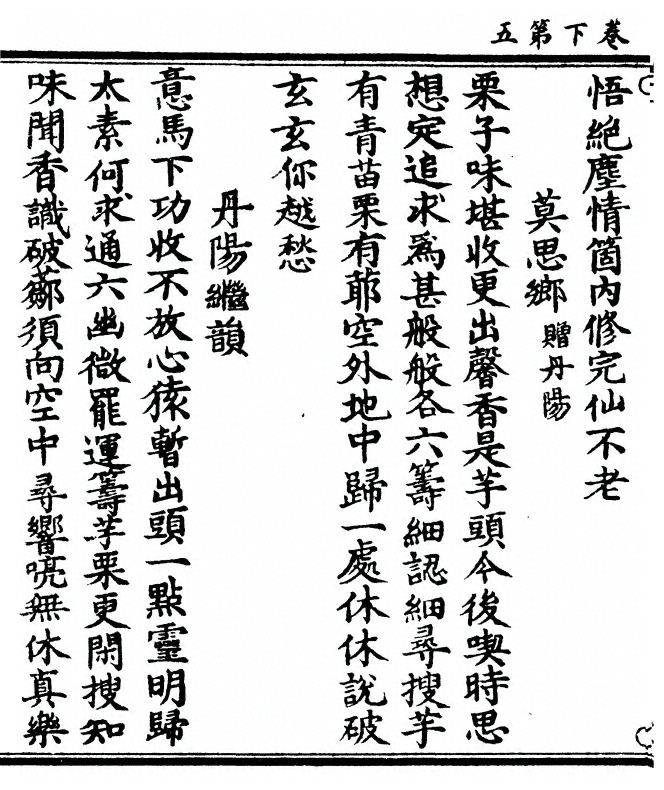 卷下第五
悟絶塵情箇內修完仙不老
莫思鄉 贈丹陽
栗子味堪收更出馨香是芋頭今後喫時思
想定追求爲甚般般各六籌細認細尋搜芋
有青苗栗有蓈空外地中歸一處休休說破
玄玄你越愁
丹陽繼韻
意馬下功收不放心猿暫出頭一點靈明歸
太素何求通六幽微罷運籌芋栗更閑搜知
味聞香識破蘂須向空中尋響喨無休真樂